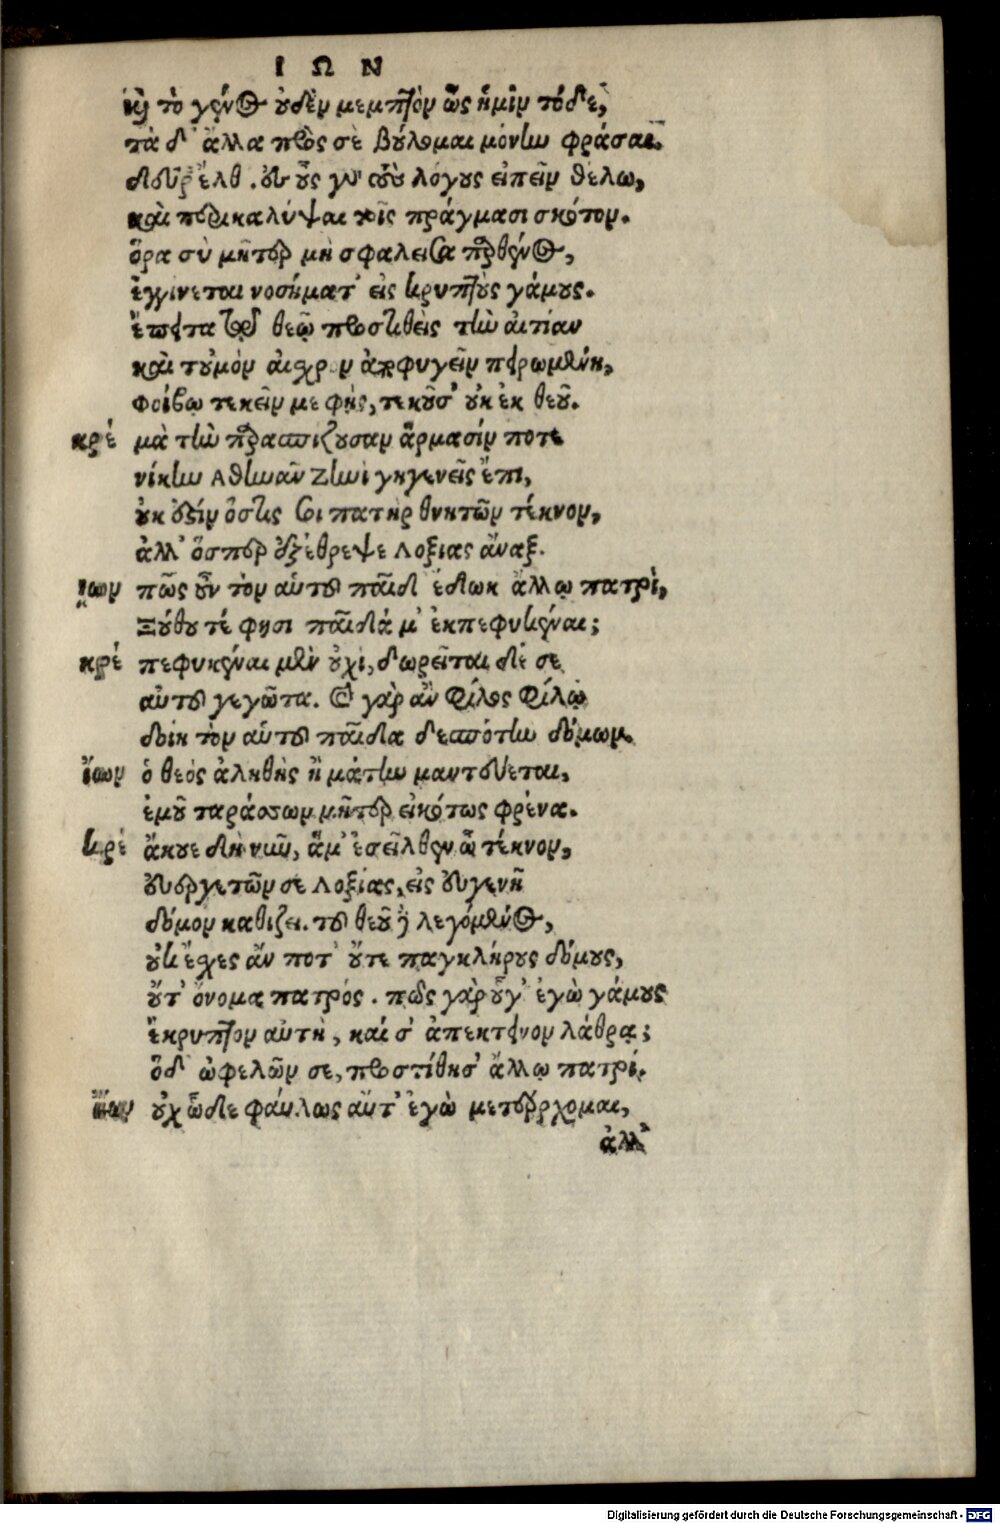 ΙΩΝ
καὶ τὸ γένος οὐδὲν μεμπτὸν ὡς ἡμῖν τόδε,
τὰ δ' ἄλλα πρὸς σὲ βούλομαι μόνην φράσαι.
δεῦρ' ἔλθ'. οὖς γὰρ τοὺς λόγους εἰπεῖν θέλω,
καὶ περικαλύψαι τοῖς πράγμασι σκότον.
ὅρα σὺ μῆτερ μὴ σφαλεῖσα παρθένος,
ἐγγίνεται νοσήματ' εἰς κρυπτοὺς γάμους.
ἔπειτα τῷ θεῷ προστιθεὶς τὴν αἰτίαν
καὶ τοὐμὸν αἰσχρὸν ἀποφυγεῖν πειρωμένη,
φοίβῳ τεκεῖν με φής, τεκοῦσ' οὐκ ἐκ θεοῦ.
κρέ μὰ τὴν παρασπίζουσαν ἅρμασίν ποτε
νίκην Ἀθηνᾶν Ζηνὶ γηγενεῖς ἔπι,
οὐκ ἔστιν ὅστις σοι πατὴρ θνητῶν τέκνον,
ἀλλ' ὅσπερ ἐξέθρεψε Λοξίας ἄναξ.
ἴων πῶς οὖν τὸν αὑτοῦ παῖδ' ἔδωκ' ἄλλῳ πατρὶ,
Ξούθου τέ φησι παῖδά μ' ἐκπεφυκέναι;
κρέ πεφυκέναι μὲν οὐχὶ, δωρεῖται δέ σε
αὐτοῦ γεγῶτα. καὶ γὰρ ἂν φίλος φίλῳ
δοίη τὸν αὑτοῦ παῖδα δεσπότην δόμων.
ἴων ὁ θεὸς ἀληθὴς ἢ μάτην μαντεύεται,
ἐμοῦ ταράσσων μῆτερ εἰκότως φρένα.
κρέ ἄκουε δὴ νῦν, ἅμ' ἐσῆλθεν ὦ τέκνον,
εὐεργετῶν σε Λοξίας, εἰς εὐγενῆ
δόμον καθίζει. τοῦ θεοῦ δὲ λεγόμενος,
οὐκ ἔχες ἄν ποτ' οὔτε παγκλήρους δόμους,
οὔτ' ὄνομα πατρός. πῶς γὰρ οὗ γ' ἐγὼ γάμους
ἔκρυπτον αὐτὴ, καί σ' ἀπέκτεινον λάθρᾳ;
ὅδ' ὠφελῶν σε, προστίθησ' ἄλλῳ πατρί.
ἴων οὐχ ὧδε φαύλως αὔτ' ἐγὼ μετέρχομαι,
ἀλλ'
Digitalisierung gefördert durch die Deutsche Forschungsgemeinschaft - DFG